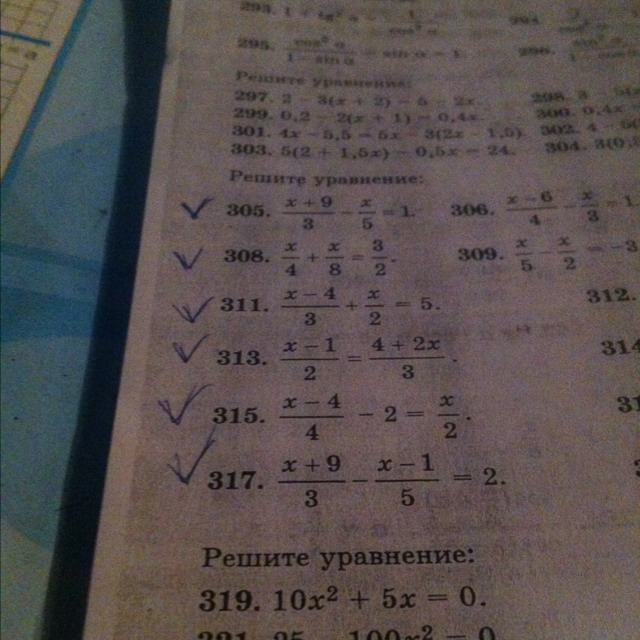 295.
Решите уравнение:
297. 2 − 3(x + 2) = 5 − 2x.
299. 0,2 − 2(x + 1) = 0,4x.
301. 4x − 5,5 = 5x − 3(2x − 1,5). 302.
303. 5(2 + 1,5x) − 0,5x = 24. 304.
Решите уравнение:
305. (x + 9)/3 − x/5 = 1. 306. (x − 6)/4 − x/3 = 1
308. x/4 + x/8 = 3/2. 309. x/5 − x/2 = −3
311. (x − 4)/3 + x/2 = 5. 312.
313. (x − 1)/2 = (4 + 2x)/3. 314
315. (x − 4)/4 − 2 = x/2. 31
317. (x + 9)/3 − (x − 1)/5 = 2.
Решите уравнение:
319. 10x² + 5x = 0.